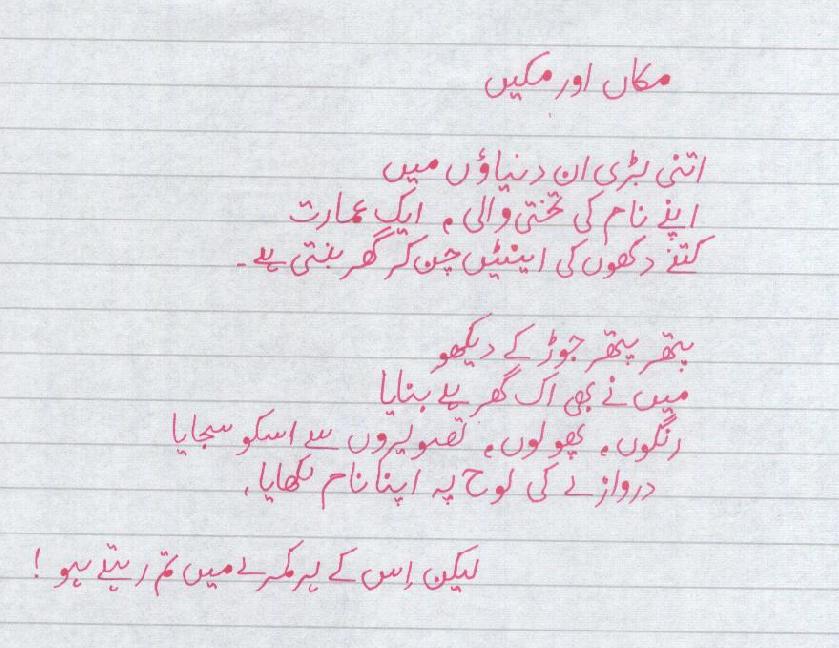 مکاں اور مکیں
اتنی بڑی ان دنیاؤں میں
اپنے نام کی تختی والی، ایک عمارت
کتنے دکھوں کی اینٹیں چن کر گھر بنتی ہے۔
پتھر پتھر جوڑ کے دیکھو
میں نے بھی اک گھر ہے بنایا
رنگوں، پھولوں، تصویروں سے اسکو سجایا
دروازے کی لوح پہ اپنا نام لکھایا،
لیکن اِس کے ہر کمرے میں تم رہتے ہو !